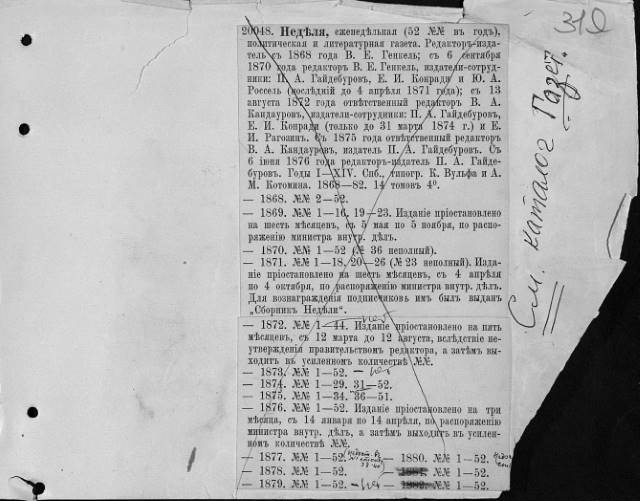 319
20048. Недѣля, еженедѣльная (52 №№ въ годъ),
политическая и литературная газета. Редакторъ-изда-
тель съ 1868 года В. Е. Генкель; съ 6 сентября
1870 года редакторъ В. Е. Генкель, издатели-сотруд-
ники: П. А. Гайдебуровъ, Е. И. Конради и Ю. А.
Россель (послѣдній до 4 апрѣля 1871 года); съ 13
августа 1872 года отвѣтственный редакторъ В. А.
Кандауровъ, издатели-сотрудники: П. А. Гайдебуровъ,
Е. И. Конради (только до 31 марта 1874 г.) и Е.
И. Рагозинъ. Съ 1875 года отвѣтственный редакторъ
В. А. Кандауровъ, издатель П. А. Гайдебуровъ. Съ
6 іюня 1876 года редакторъ-издатель П. А. Гайде-
буровъ. Годы I—XIV. Спб., типогр. К. Вульфа и А.
М. Котомина. 1868—82. 14 томовъ 4⁰.
— 1868. №№ 2—52.
— 1869. №№ 1—16, 19—23. Изданіе пріостановлено
на шесть мѣсяцевъ, съ 5 мая по 5 ноября, по распо-
ряженію министра внутр. дѣлъ.
— 1870. №№ 1—52 (№ 36 неполный).
— 1871. №№ 1—18, 20—26 (№ 23 неполный). Изда-
ніе пріостановлено на шесть мѣсяцевъ, съ 4 апрѣля
по 4 октября, по распоряженію министра внутр. дѣлъ.
Для вознагражденія подписчиковъ имъ былъ выданъ
„Сборникъ Недѣли“.
— 1872. №№ 1—44. Изданіе пріостановлено на пять
мѣсяцевъ, съ 12 марта до 12 августа, вслѣдствіе не-
утвержденія правительствомъ редактора, а затѣмъ вы-
ходитъ въ усиленномъ количествѣ №№.
— 1873. №№ 1—52. — нет
— 1874. №№ 1—29. 31—52.
— 1875. №№ 1—34. 36—51.
— 1876. №№ 1—52. Изданіе пріостановлено на три
мѣсяца, съ 14 января по 14 апрѣля, по распоряженію
министра внутр. дѣлъ, а затѣмъ выходитъ въ усилен-
номъ количествѣ №№.
— 1877. №№ 1—52. — 1880. №№ 1—52.
— 1878. №№ 1—52. — 1881. №№ 1—52.
— 1879. №№ 1—52. — нет — 1882. №№ 1—52.
См. каталог Газет.